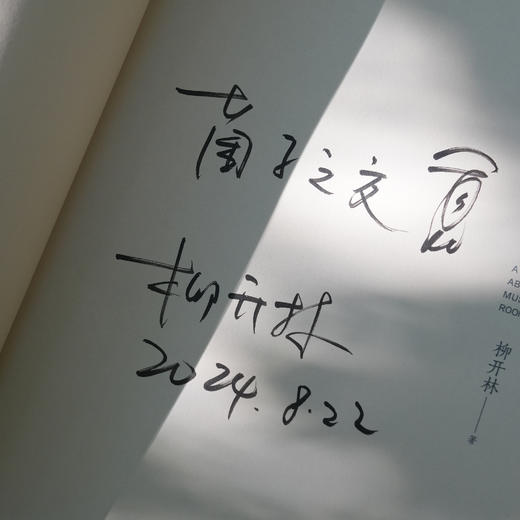 之交
柳开林
2024.8.22
A
AB
MUS
ROO
柳开林——著